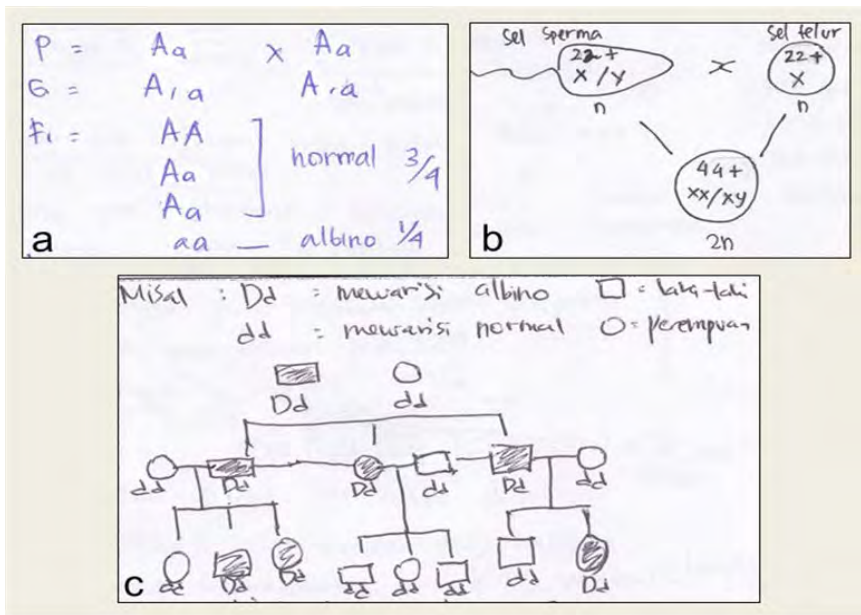 P = Aa x Aa
G = A, a A, a
F1 = AA
Aa normal 3/4
Aa
aa — albino 1/4
a
Sel Sperma Sel telur
22+ 22+
X/Y × X
n n
44+
XX/XY
2n
b
Misal : Dd = mewarisi albino □ = laki-laki
dd = mewarisi normal ○ = perempuan
Dd dd
dd Dd Dd dd Dd dd
dd Dd Dd dd dd dd dd Dd
c